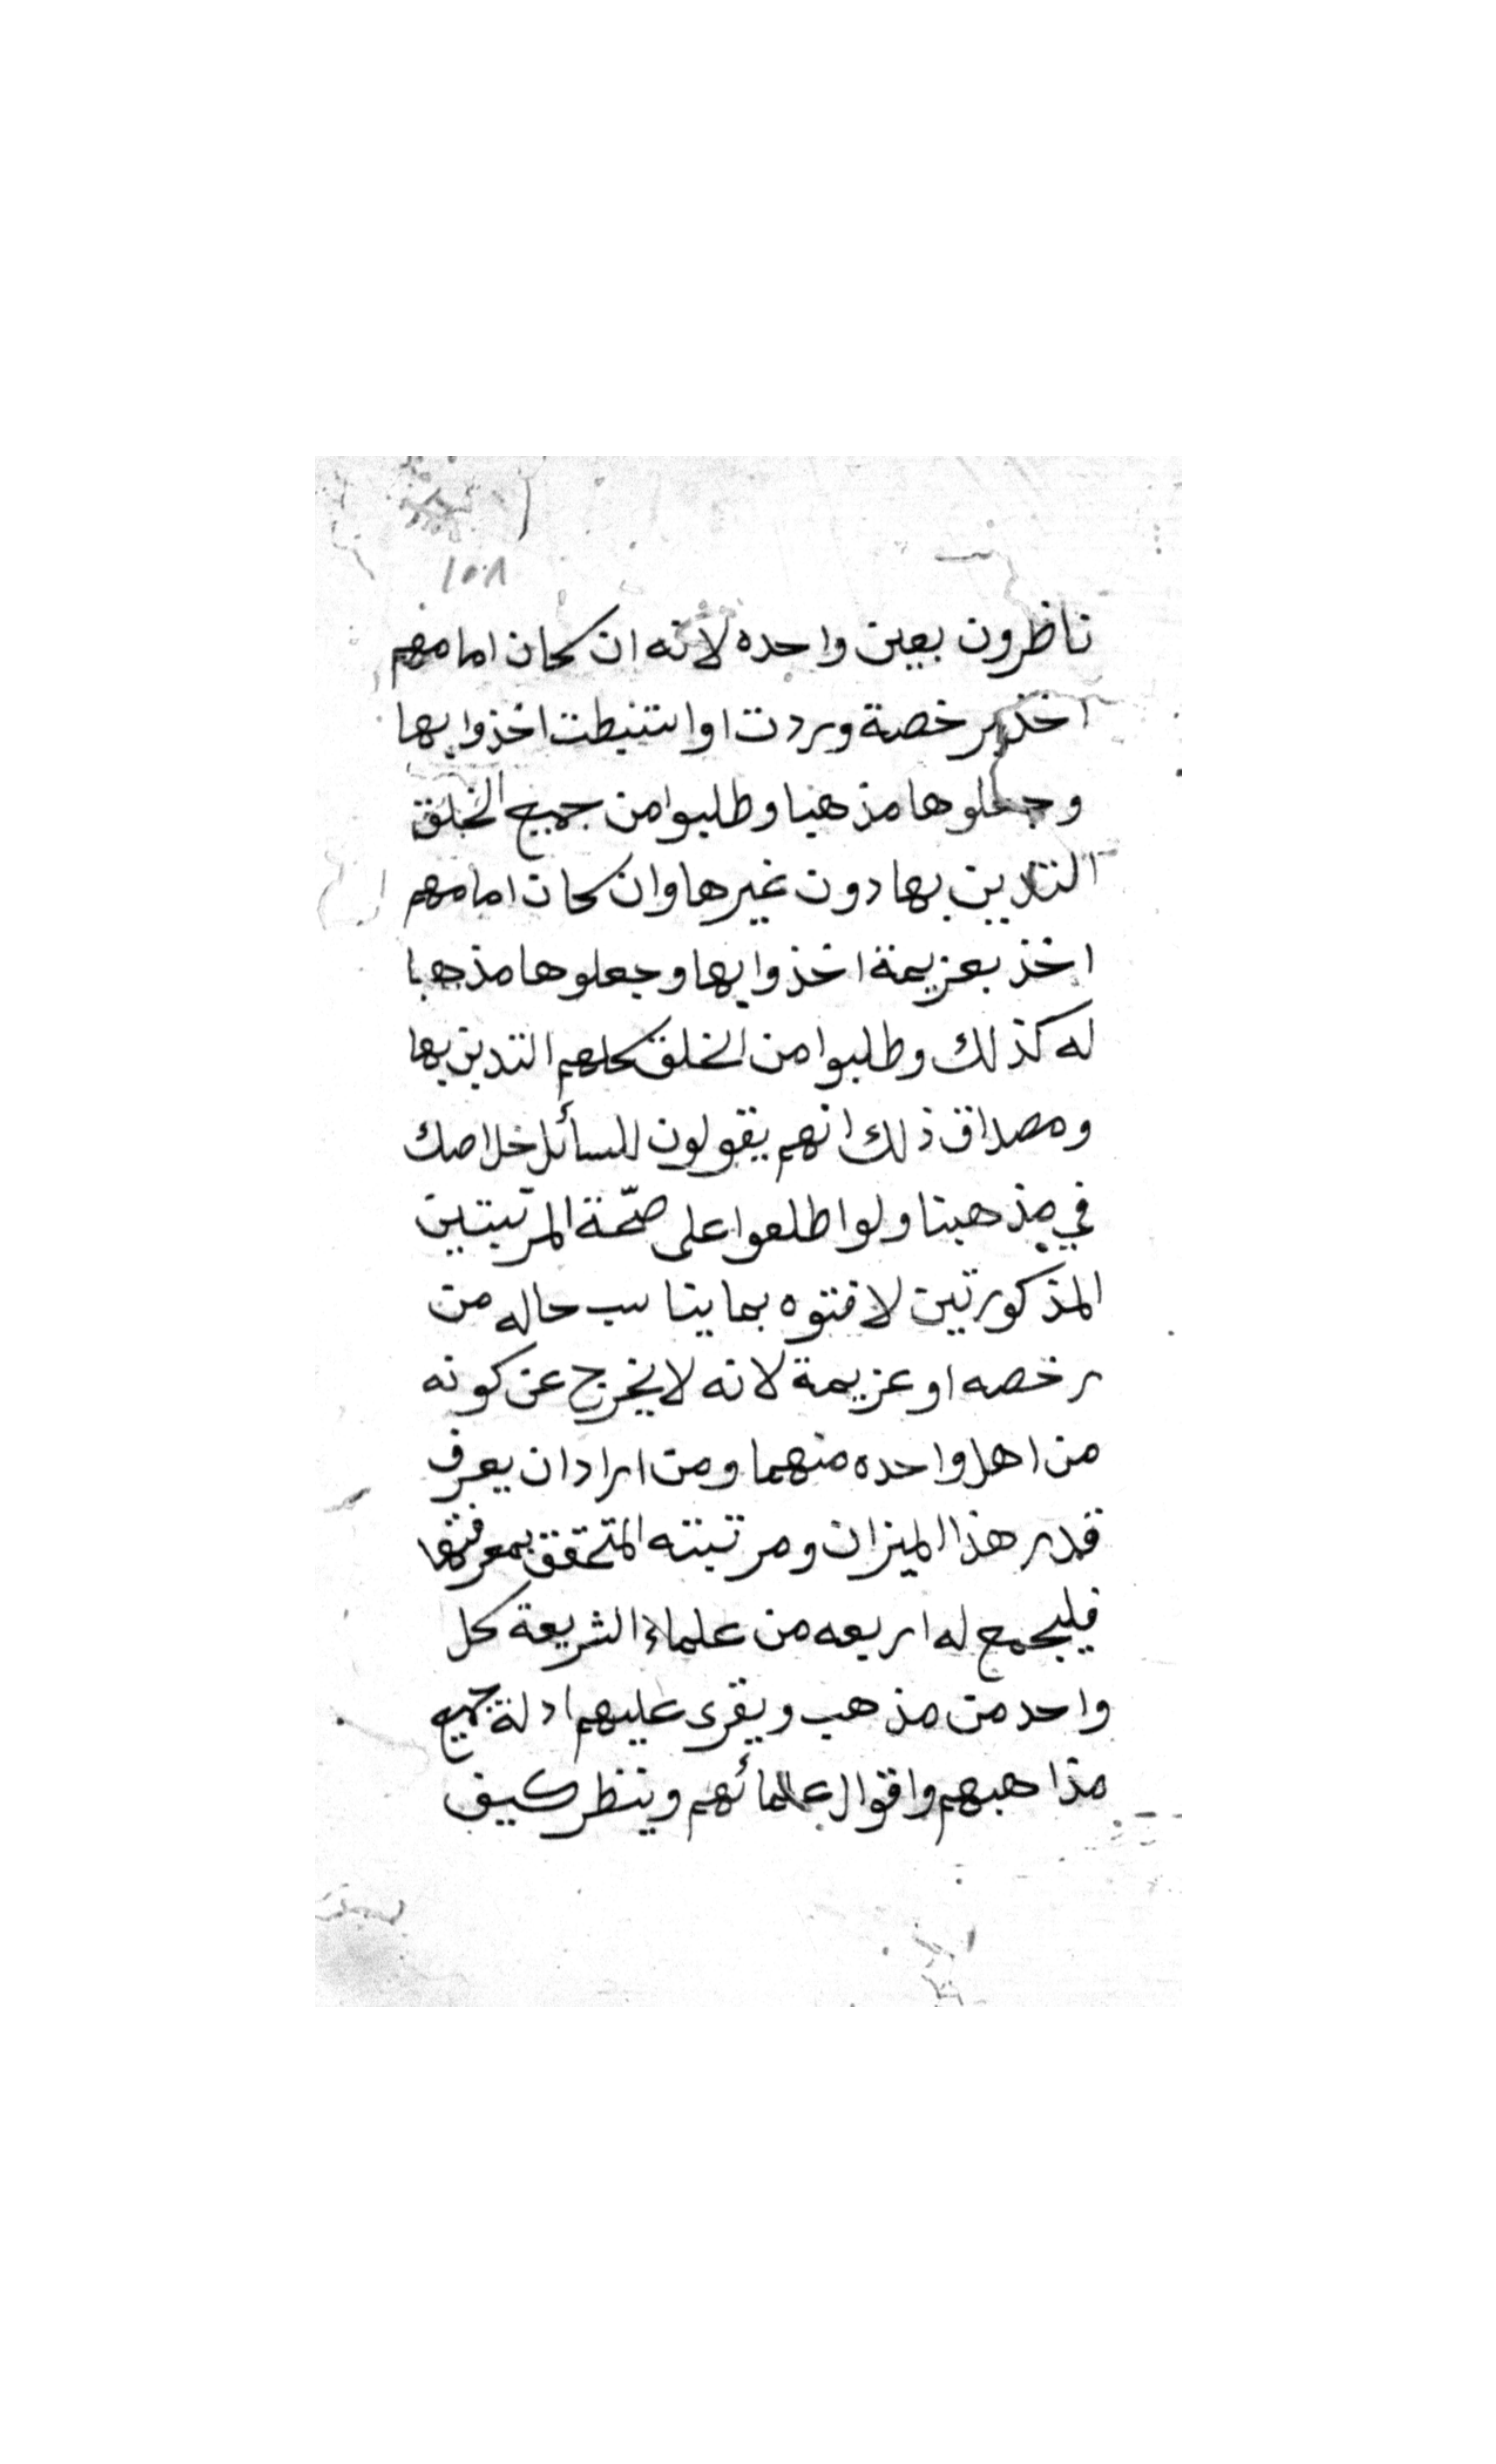 ١٠٨
ناظرون بعين واحده لانه ان كان امامهم
اخذ برخصة وردت او استنبطت اخذوا بها
وجعلوها مذهبا وطلبوا من جميع الخلق
التدين بها دون غيرها وان كان امامهم
اخذ بعزيمة اخذوا بها وجعلوها مذهبا
له كذلك وطلبوا من الخلق كلهم التدين بها
ومصداق ذلك انهم يقولون للسائل خلاصك
في مذهبنا ولو اطلعوا على صحّة المرتبتين
المذكورتين لافتوه بما يناسب حاله من
رخصه او عزيمة لانه لا يخرج عن كونه
من اهل واحده منهما ومن اراد ان يعرف
قدر هذا الميزان ومرتبته المتحقق بمعرفتها
فليجمع له اربعه من علماء الشريعة كل
واحد من مذهب ويقرى عليهم ادلة جميع
مذاهبهم واقوال علمائهم وينظر كيف